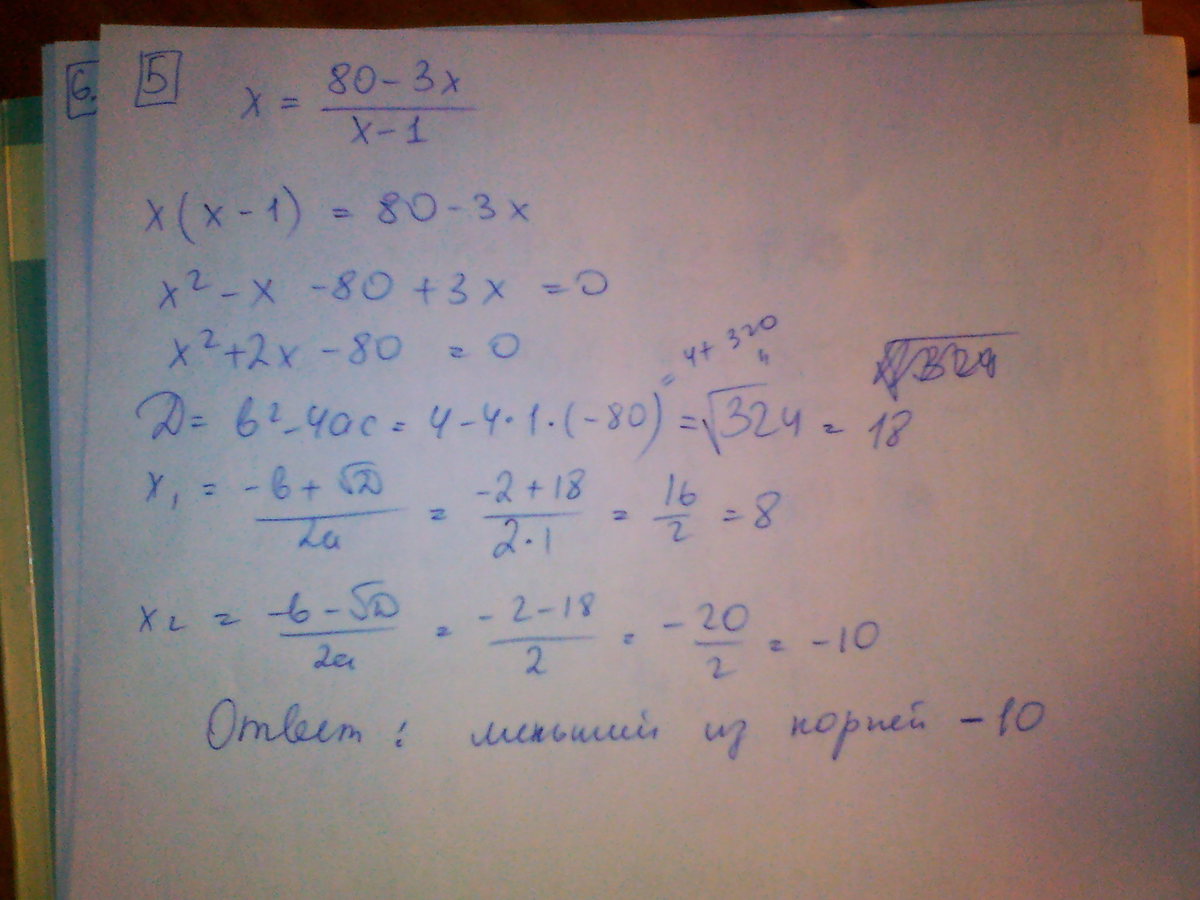 6.
5
x = (80-3x)/(x-1)
x(x-1) = 80-3x
x² - x - 80 + 3x = 0
x² + 2x - 80 = 0
= 4 + 320
D = b² - 4ac = 4 - 4·1·(-80) = √324 = 18
x₁ = (-b + √D)/2a = (-2+18)/(2·1) = 16/2 = 8
x₂ = (-b - √D)/2a = (-2-18)/2 = -20/2 = -10
Ответ: меньший из корней -10